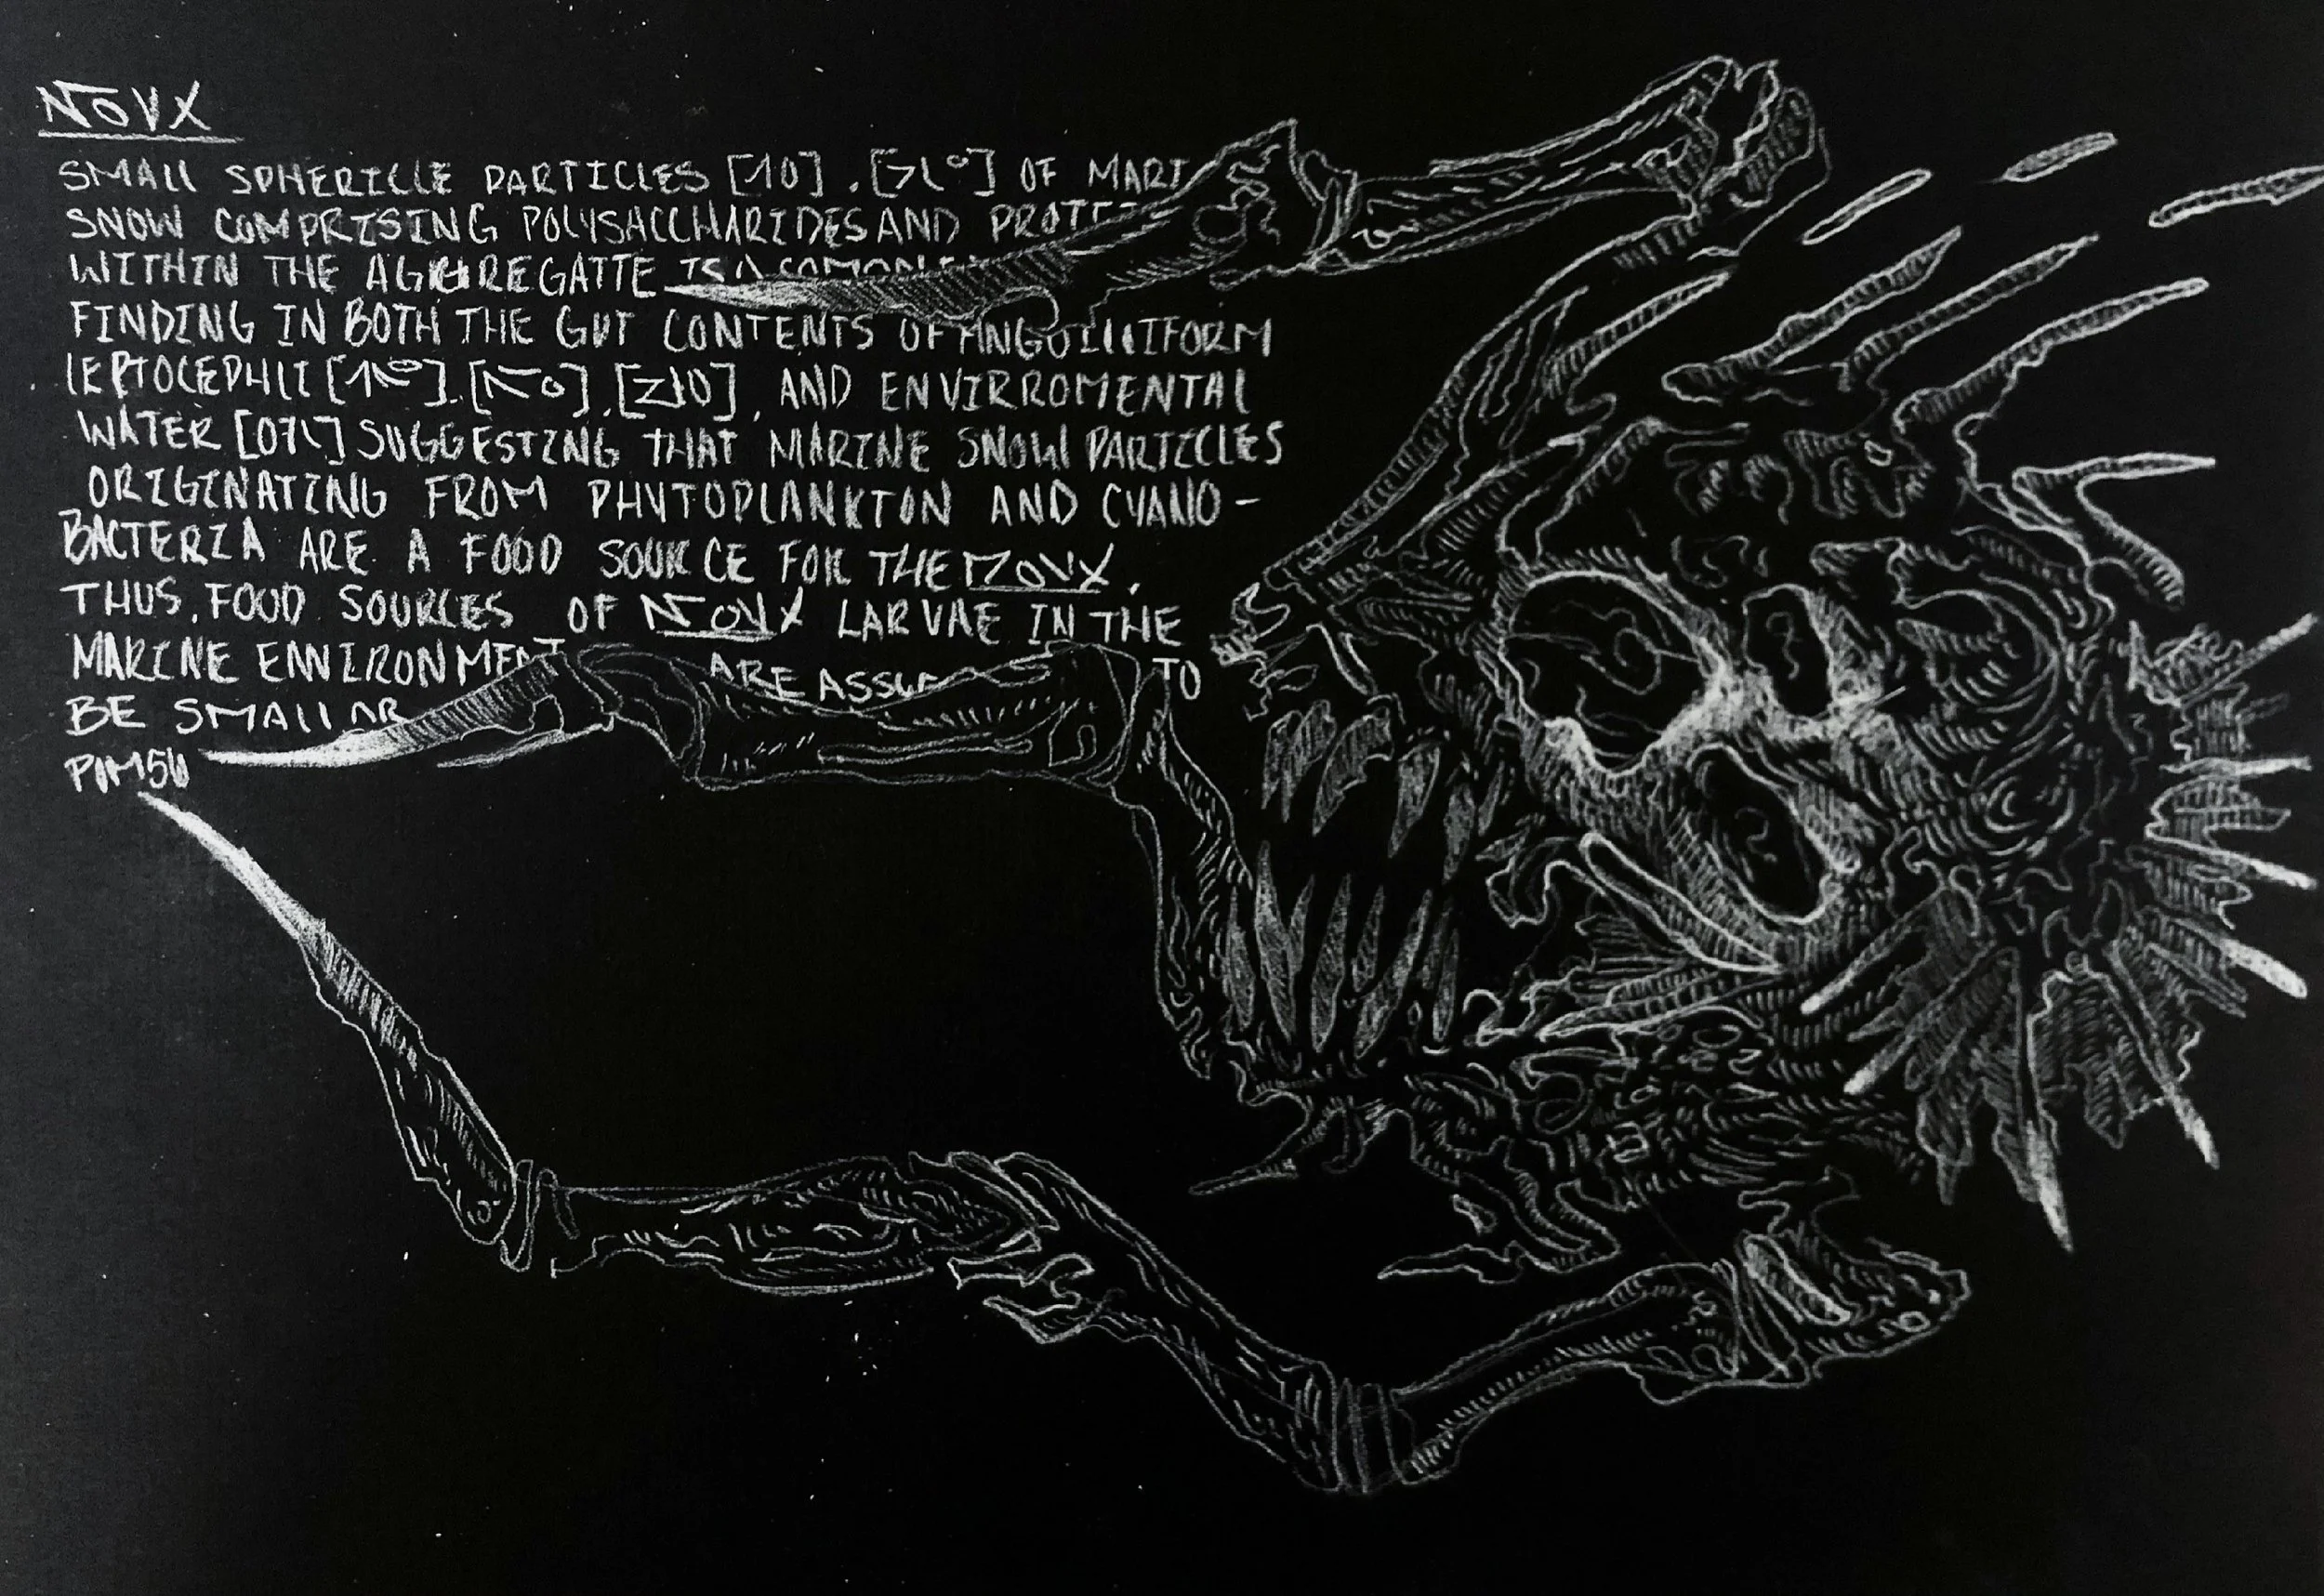 NOVX
SMALL SPHERICLE PARTICLES [10], OF MARI
SNOW COMPRISING POLYSACCHARIDES AND PROTE
WITHIN THE AGGREGATTE IS A COMON
FINDING IN BOTH THE GUT CONTENTS OF ANGUILLIFORM
LEPTOCEPHLI AND ENVIRROMENTAL
WATER SUGGESTING THAT MARINE SNOW PARTICLES
ORIGINATING FROM PHYTOPLANKTON AND CYANO-
BACTERIA ARE A FOOD SOURCE FOR THE NOVX.
THUS, FOOD SOURCES OF NOVX LARVAE IN THE
MARINE ENVIRONMENT ARE ASSU TO
BE SMALL OR